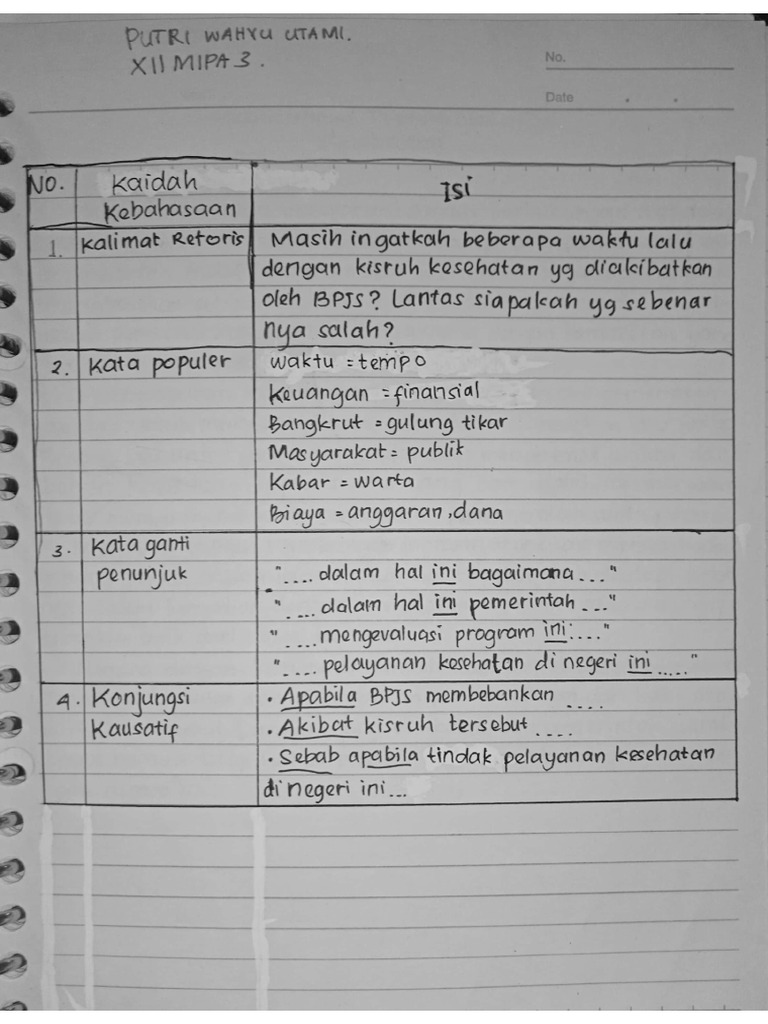 PUTRI WAHYU UTAMI.
XII MIPA 3.
No.
Date
NO.
Kaidah
Kebahasaan
Isi
1.
Kalimat Retoris
Masih ingatkah beberapa waktu lalu
dengan kisruh kesehatan yg diakibatkan
oleh BPJS? Lantas siapakah yg sebenar
nya salah?
2.
Kata populer
waktu = tempo
Keuangan = finansial
Bangkrut = gulung tikar
Masyarakat = publik
Kabar = warta
Biaya = anggaran, dana
3.
Kata ganti
penunjuk
".... dalam hal ini bagaimana ..."
".... dalam hal ini pemerintah ..."
".... mengevaluasi program ini: ..."
".... pelayanan kesehatan di negeri ini ....."
4.
Konjungsi
Kausatif
• Apabila BPJS membebankan ....
• Akibat kisruh tersebut ....
• Sebab apabila tindak pelayanan kesehatan
di negeri ini ...